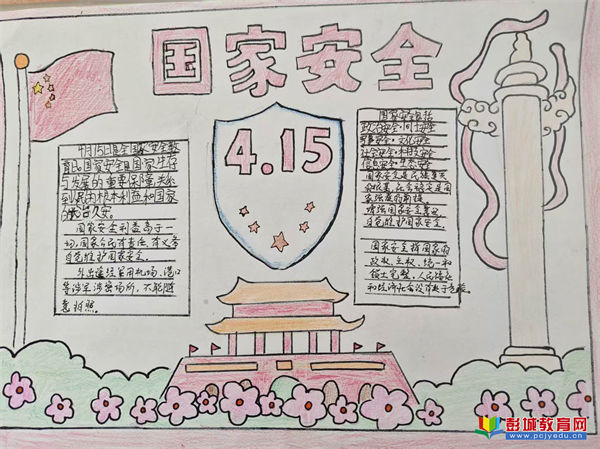 国家安全
4.15
4月15日是全国家安全教
育日。国家安全是国家生存
与发展的重要保障,关系
到人民的根本利益和国家
的长治久安。
国家安全利益高于一
切,国家公民有责任、有义务
自觉维护国家安全。
外出遇军用机场、港口
等涉军涉密场所,不能随
意拍照。
国家安全包括
政治安全·国土安全
军事安全·文化安全
社会安全·科技安全
信息安全·生态安全
国家安全是民族复兴
的根基,社会稳定是国
家强盛的前提
增强国家安全意识
自觉维护国家安全。
国家安全指国家的
政权、主权、统一和
领土完整、人民福祉
和经济社会
彭城教育网
www.pcjyedu.cn